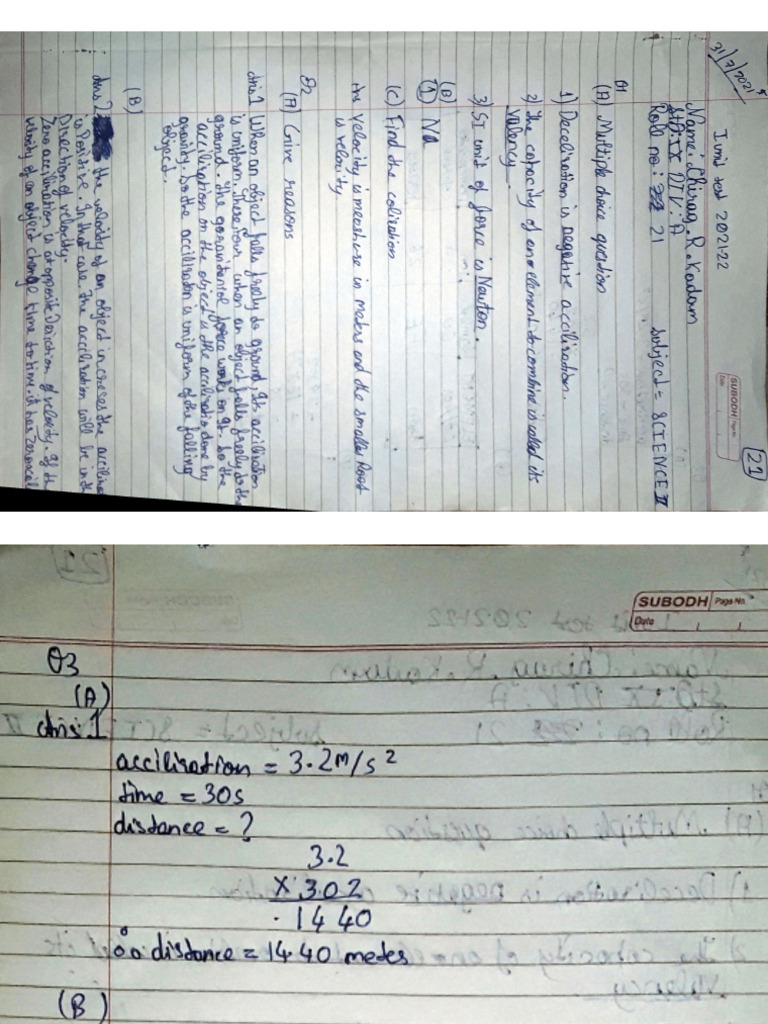 31/7/2021
I unit test 2021-22
SUBODH
21
Name: Chirag. R. Kadam
STD: IX DIV: A
Subject = SCIENCE II
Roll no: 21
Q1
(A) Multiple choice question
1) Decelization is negative accilization.
2) The capacity of an element to combine is called its
Valency.
3) SI unit of force is Newton.
(B)
(1) Na
(C) Find the
the velocity is in meters and the smaller
is velocity
Q2
(A) Give reasons
Ans 1 When an object falls freely to ground, its accilization
is uniform. when an object falls freely to the
ground. The force works on it. So the
accilization on the object is the accilization done by
gravity. So the accilization is uniform of the falling
object.
(B)
Ans 2 the velocity of an object in creses the
is Positive. In that case. the accilization will be in the
Direction of velocity.
Zero accilization is at opposite Direction of velocity. If the
velocity of an object change time to time it has zero
SUBODH Page No.
Date
Q3
(A)
Ans: 1
accilization = 3.2 m/s²
time = 30s
distance = ?
3.2
× 302
1440
∴ distance = 14.40 metes
(B)